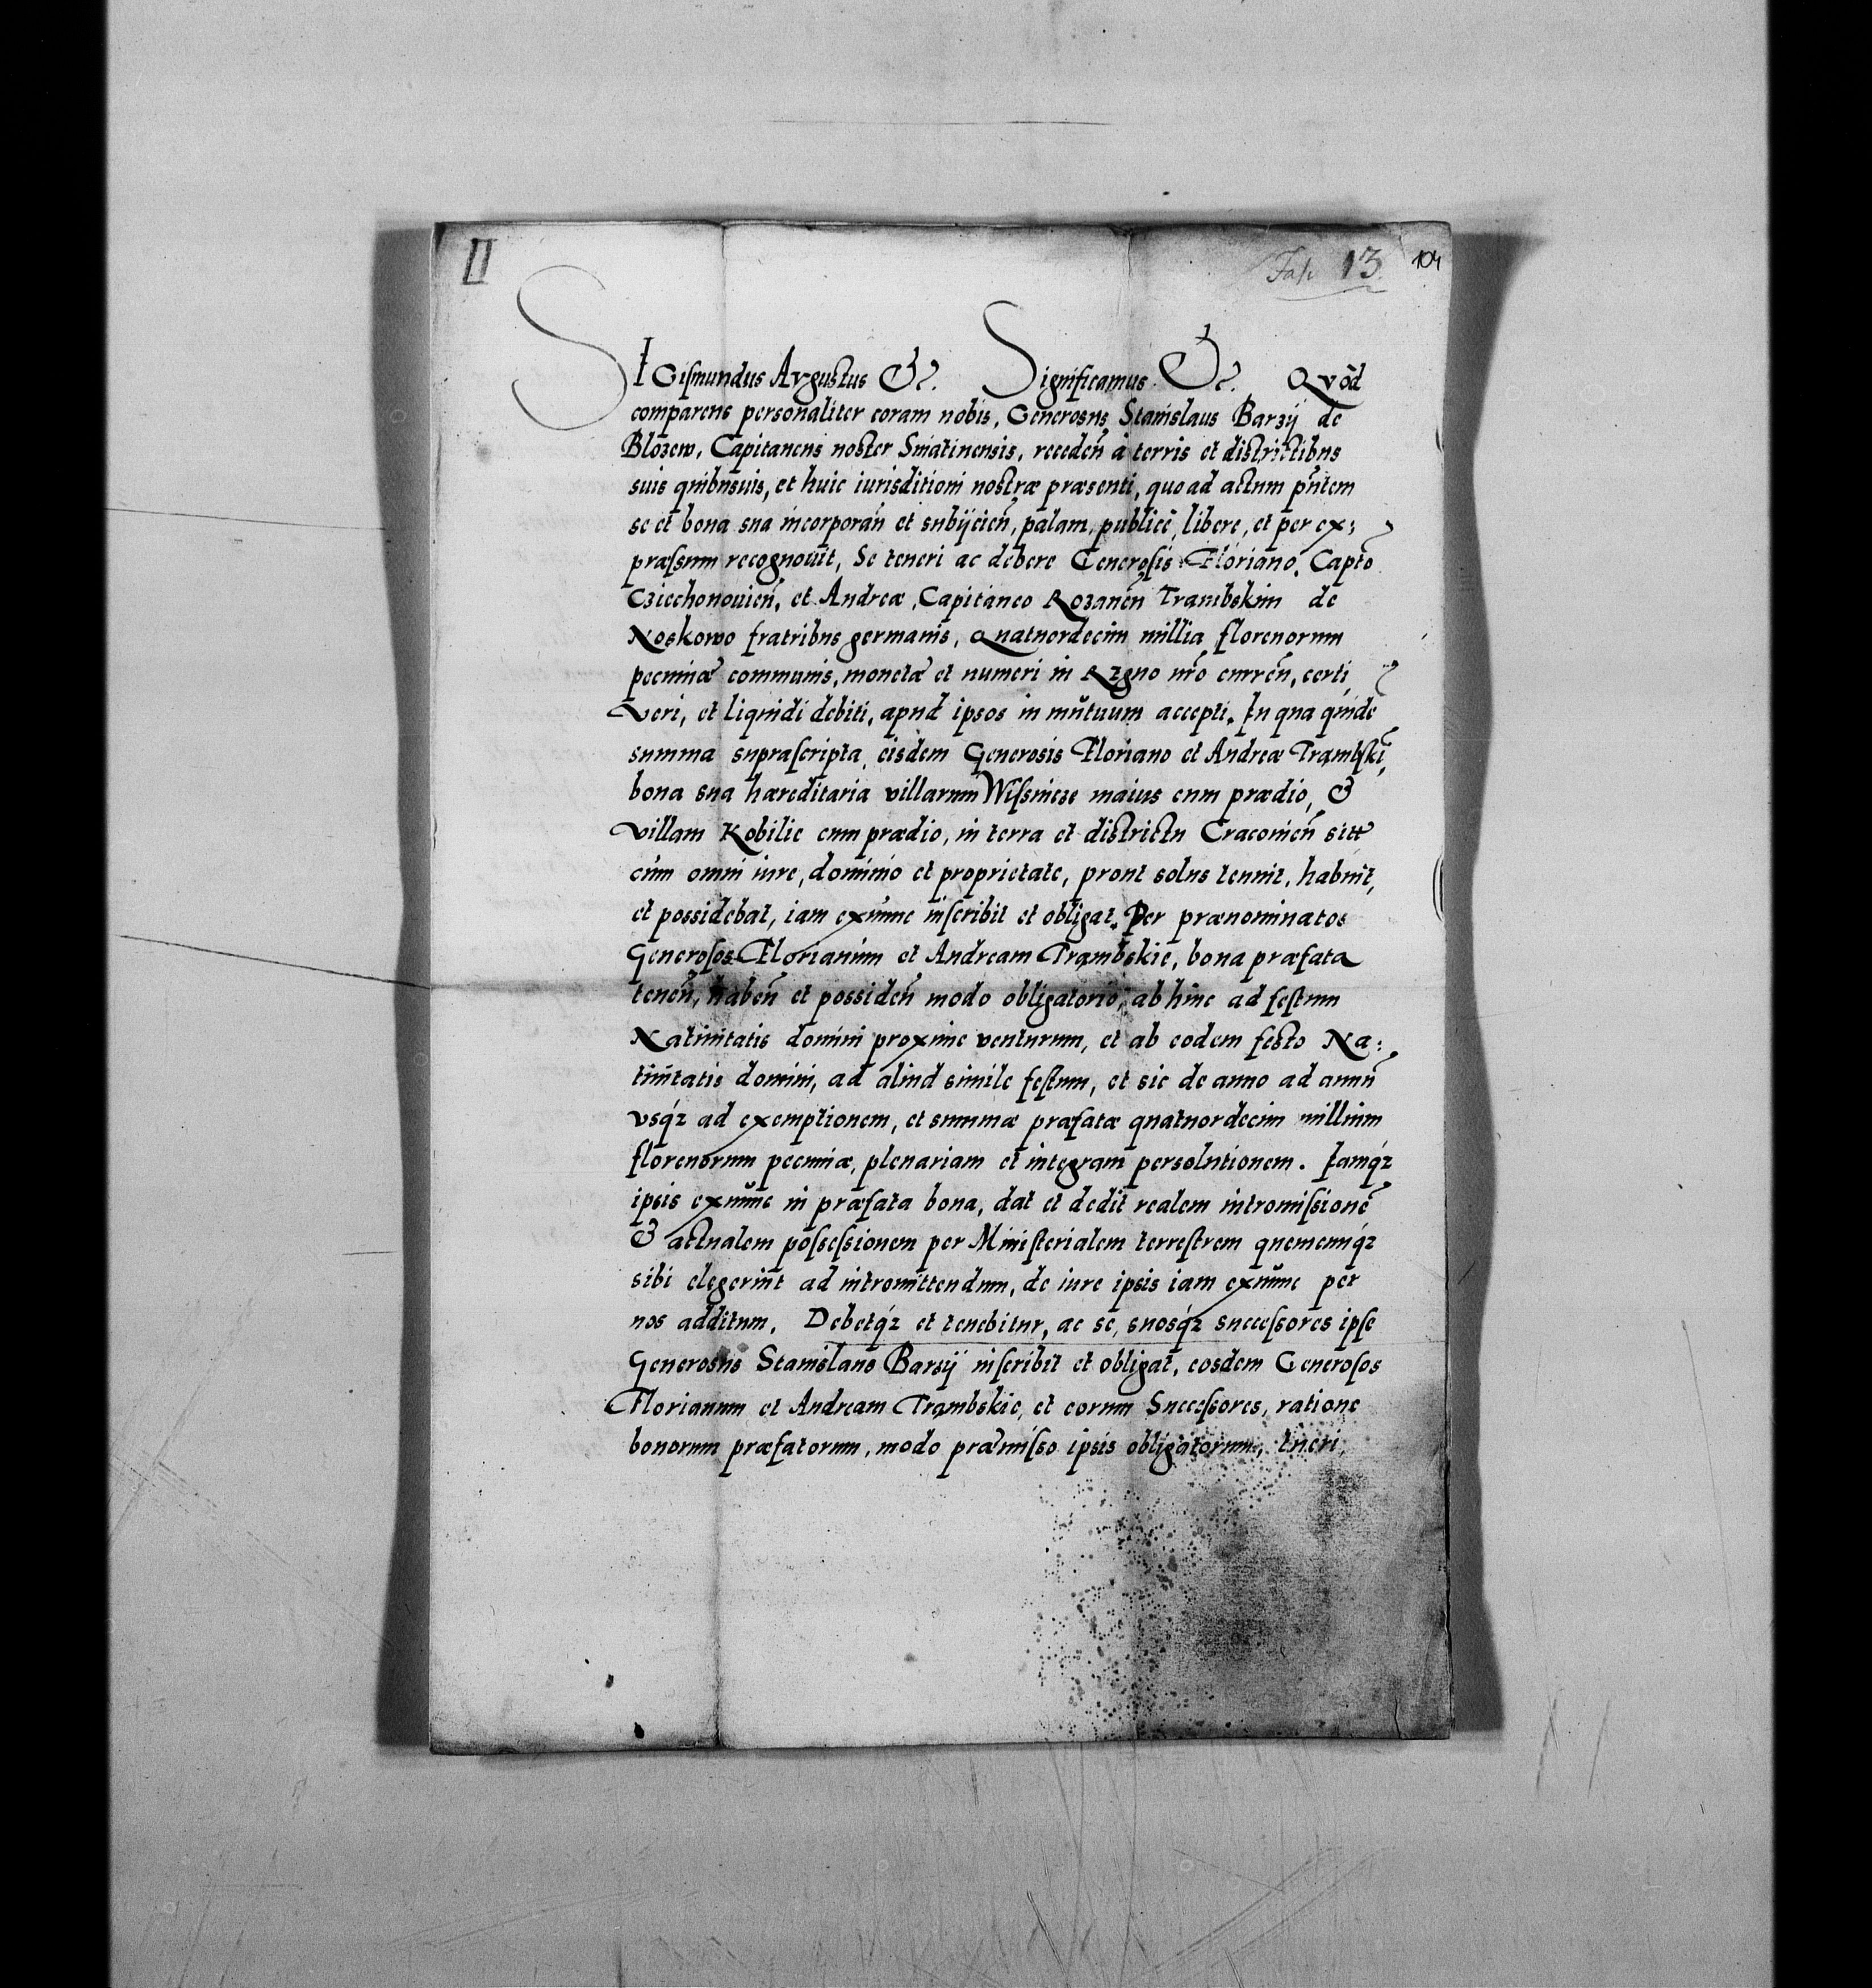 II
Fas 13
104
SIGismundus Avgustus &c. Significamus &c. Qvōd
comparens personaliter coram nobis, Generosus Stanislaus Barzij de
Blozew, Capitaneus noster Sniatinensis, receden̄ à terris et districtibus
suis quibusuis, et huic iurisditioni nostræ præsenti, quo ad actum pn̄tem
se et bona sua incorporan̄ et subijcien̄, palam, publicè, libere, et per ex:
præssum recognouit, Se teneri ac debere Generosis Floriano, Capto
Cziechonouien̄, et Andreæ, Capitaneo Rozanen̄ Trambskim de
Noskowo fratribus germanis, Quatuordecim millia florenorum
pecuniæ communis, monetæ et numeri in Regno nr̄o curren̄, certi,
Veri, et liquidi debiti, apud ipsos in mutuum accepti. In qua quidē
summa suprascripta, eisdem Generosis Floriano et Andreæ Trambski,
bona sua hæreditaria villarum Wissnicze maius cum prædio, &
villam Kobilie cum prædio, in terra et districtu Cracouien̄ sitæ
cum omni iure, dominio et proprietate, prout solus tenuit, habuit,
et possidebat, iam exnunc inscribit et obligat. Per prænominatos
Generosos Florianum et Andream Trambskie, bona præfata
tenen̄, haben̄ et possiden̄ modo obligatorio, ab hinc ad festum
Natiuitatis domini proxime venturum, et ab eodem festo Na:
tiuitatis domini, ad aliud simile festum, et sic de anno ad annū
vsq́z ad exemptionem, et summæ præfatæ quatuordecim millium
florenorum pecuniæ, plenariam et integram persolutionem. Iamq́z
ipsis exnunc in præfata bona, dat et dedit realem intromissionē
& actualem possessionem per Ministerialem terrestrem quemcunq́z
sibi elegerint ad intromittendum, de iure ipsis iam exnunc per
nos additum. Debetq́z et tenebitur, ac se, suosq́z successores ipse
Generosus Stanislaus Barzij inscribit et obligat, eosdem Generosos
Florianum et Andream Trambskie, et eorum Successores, ratione
bonorum præfatorum, modo præmisso ipsis obligatorum, tueri,